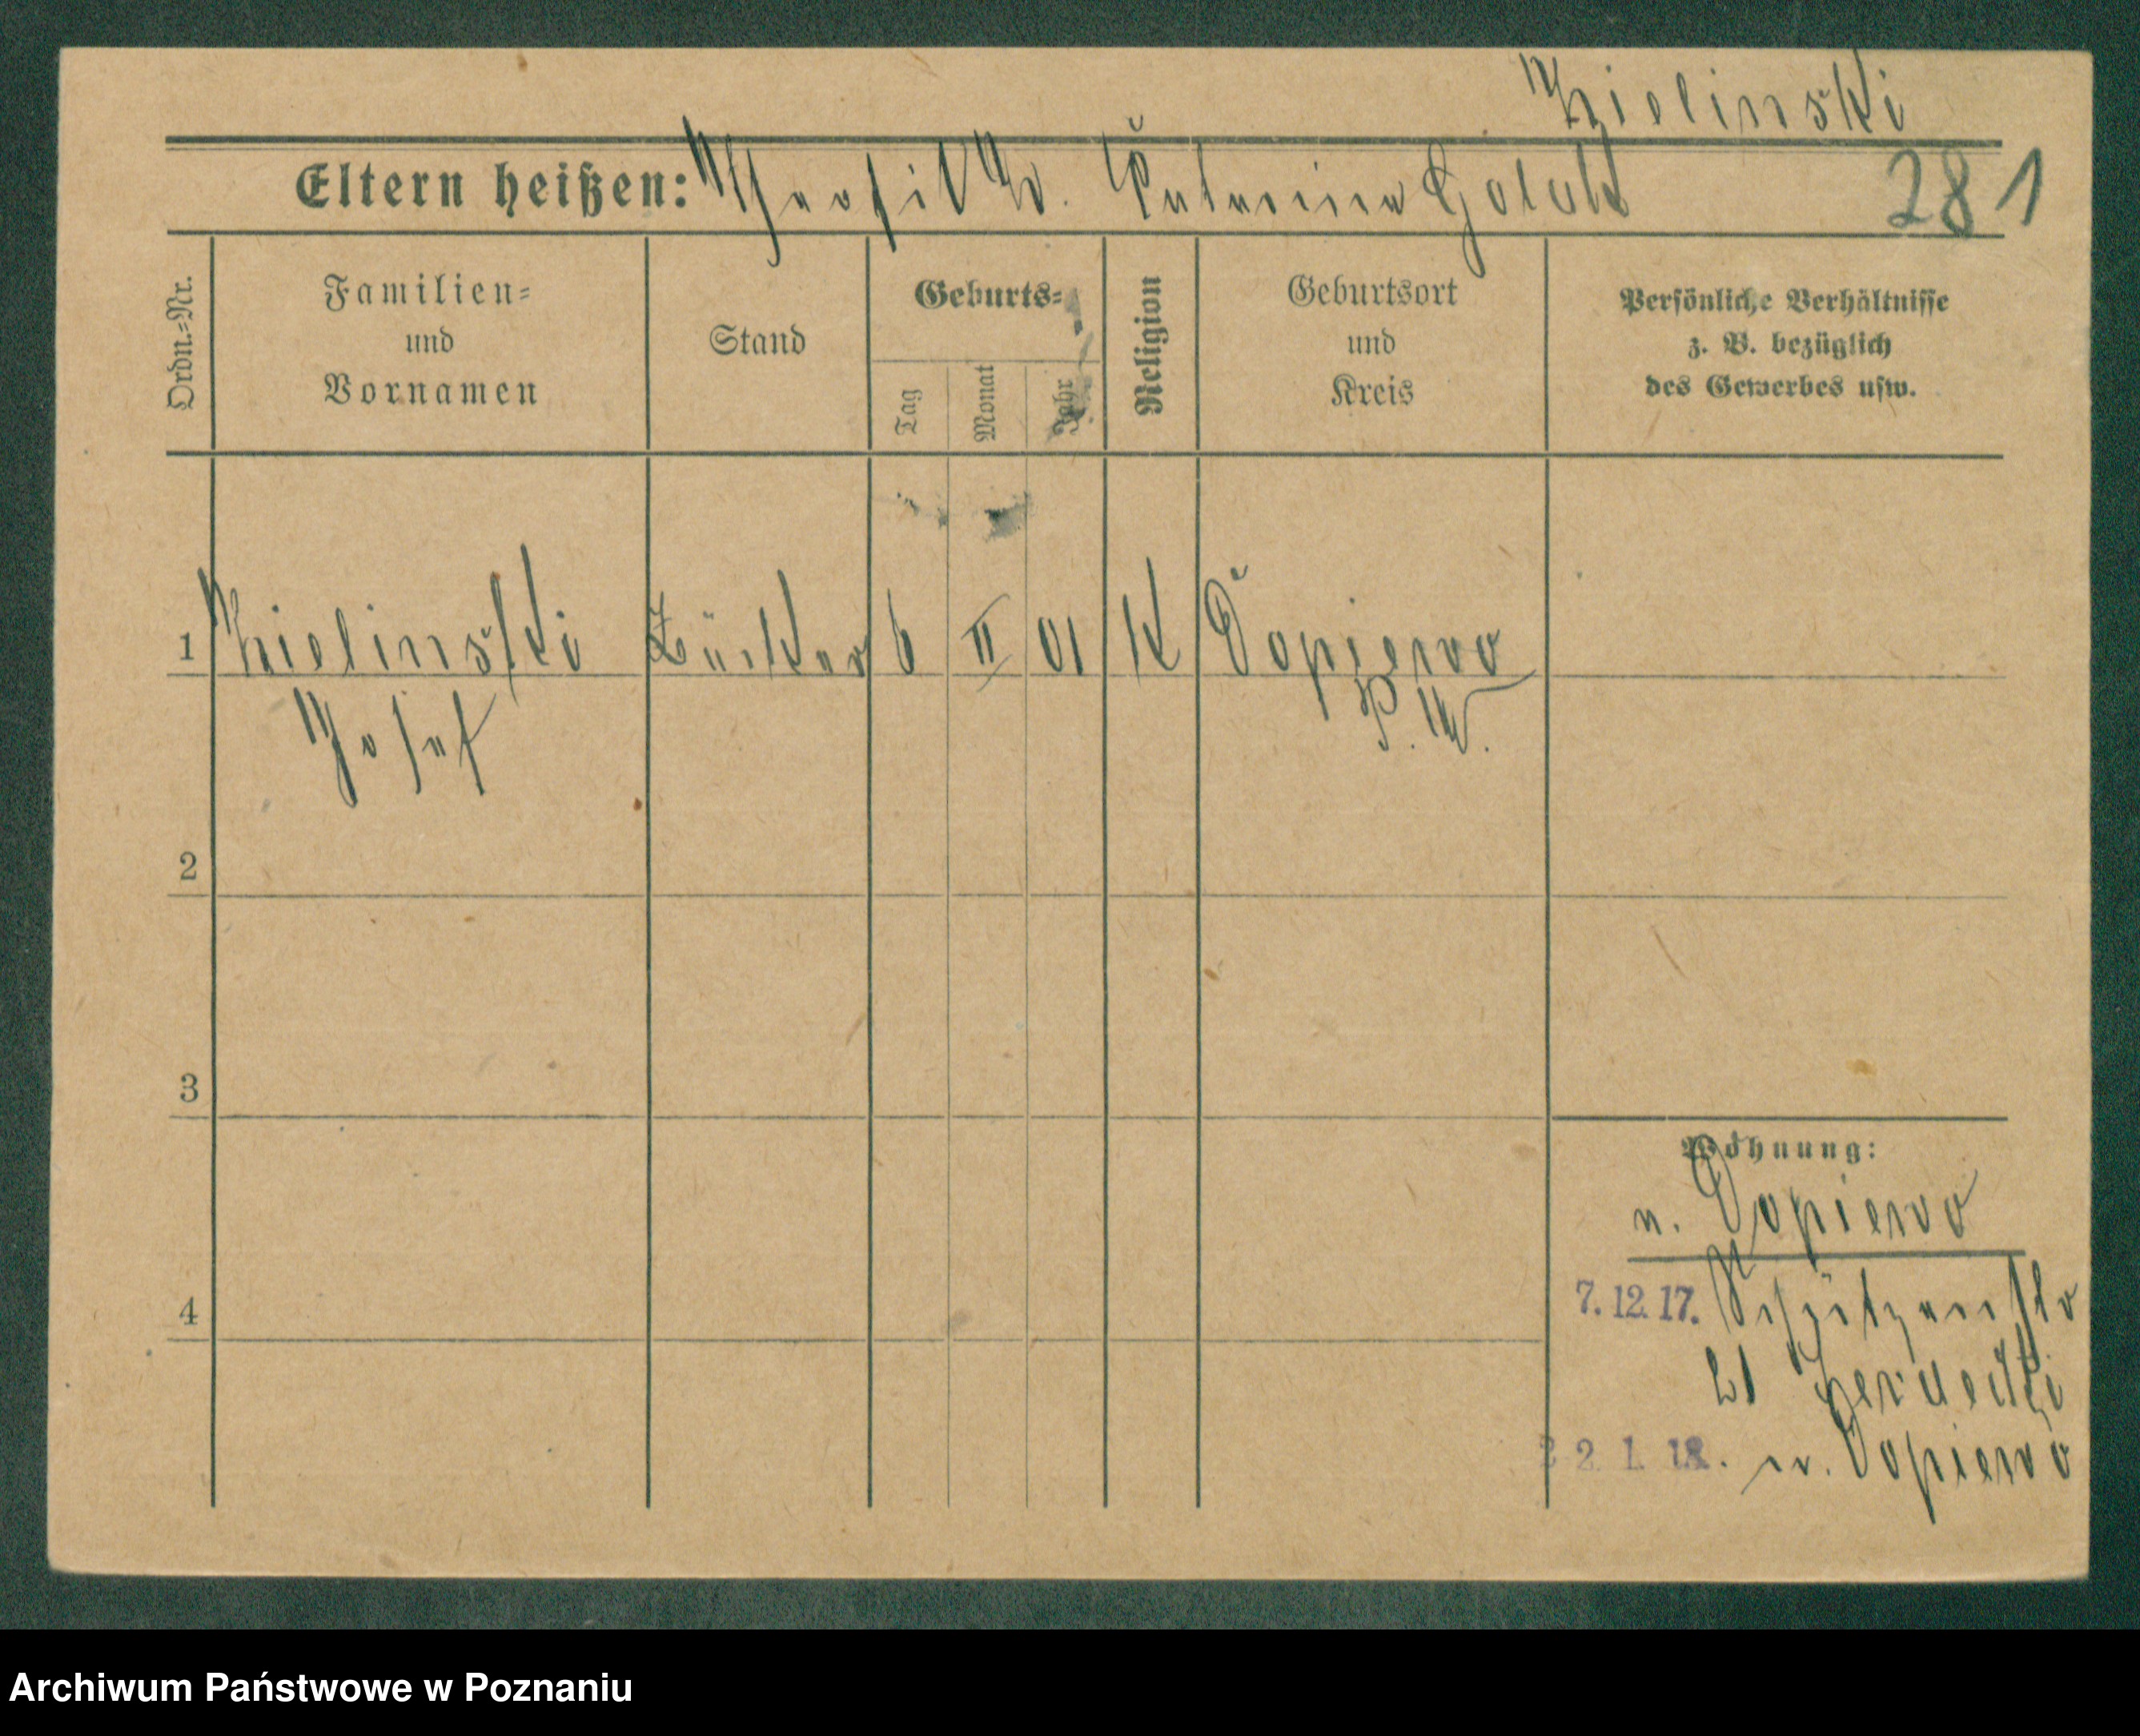 Zielinski
Eltern heißen: Theofil Z. Katarina Golak
281
Ordn.-Nr.
Familien-
und
Vornamen
Stand
Geburts-
Tag
Monat
Jahr
Religion
Geburtsort
und
Kreis
Persönliche Verhältnisse
z. B. bezüglich
des Gewerbes usw.
1 Zielinski Bäcker 6 II 01 K Dopiewo
Josef P. W.
2
3
4
Wohnung:
n. Dopiewo
7.12.17. Schützenstr
21
22.1.18. n. Dopiewo
Archiwum Państwowe w Poznaniu